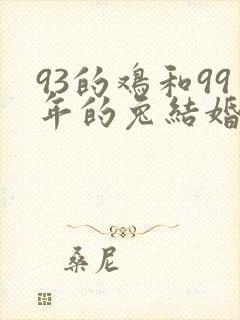 93的鸡和99
年的兔結婚
桑尼